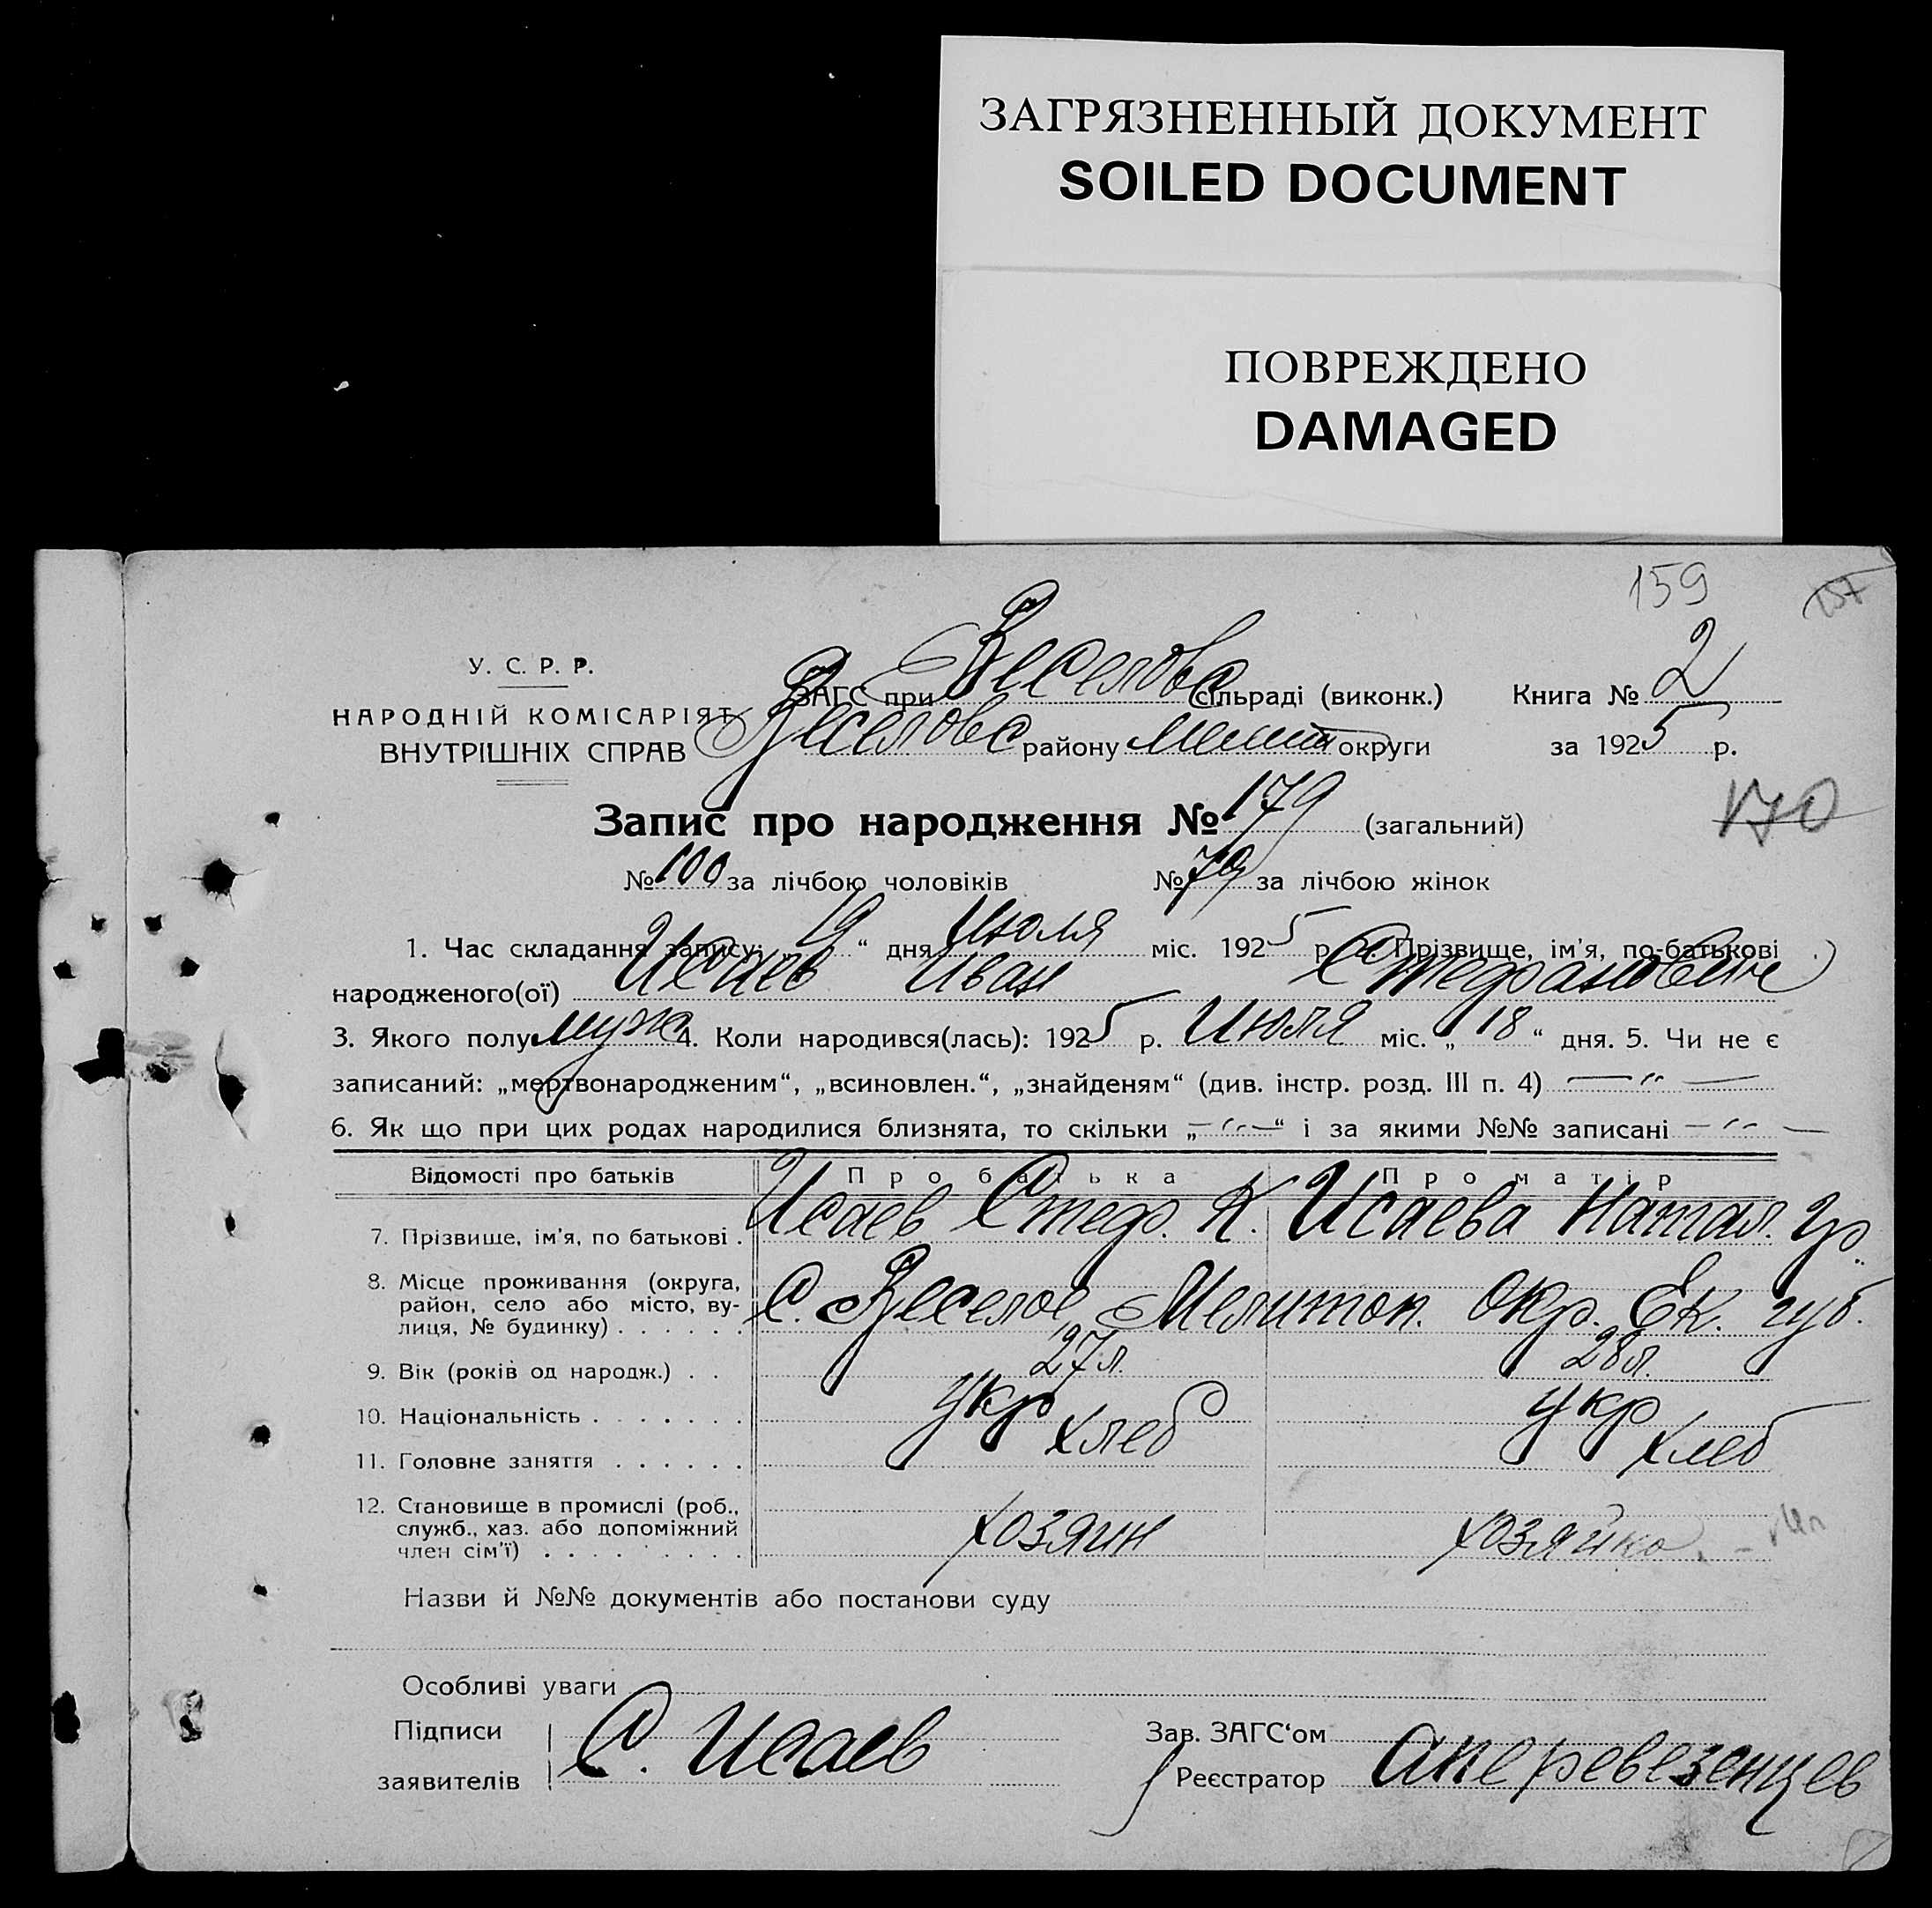 ЗАГРЯЗНЕННЫЙ ДОКУМЕНТ
SOILED DOCUMENT
ПОВРЕЖДЕНО
DAMAGED
159
У. С. Р. Р.
НАРОДНІЙ КОМІСАРІЯТ
ВНУТРІШНІХ СПРАВ
ЗАГС при Веселовс сільраді (виконк.) Книга № 2
Веселовс району Мелит округи за 1925 р.
170
Запис про народження № 179 (загальний)
№ 100 за лічбою чоловіків № 79 за лічбою жінок
1. Час складання запису: „19“ дня Июля міс. 1925 р. 2. Прізвище, ім'я, по-батькові
народженого(ої) Исаев Иван Стефанович
3. Якого полу муж 4. Коли народився(лась): 1925 р. Июля міс. „18“ дня. 5. Чи не є
записаний: „мертвонародженим“, „всиновлен.“, „знайденям“ (див. інстр. розд. III п. 4) — „ —
6. Як що при цих родах народилися близнята, то скільки „— „ —“ і за якими №№ записані — „ —
Відомості про батьків Про батька Про матір
7. Прізвище, ім'я, по батькові . Исаев Стеф. К. Исаева Натал. Гр.
8. Місце проживання (округа,
район, село або місто, ву-
лиця, № будинку) . . . . . . С. Веселое Мелитоп. Окр. Ек. губ.
9. Вік (років од народж.) . . 27 л. 28 л.
10. Національність . . . . . . . укр укр
11. Головне заняття . . . . . . хлеб хлеб
12. Становище в промислі (роб.,
служб., хаз. або допоміжний
член сім'ї) . . . . . . . . . хозяин хозяйка
Назви й №№ документів або постанови суду
Особливі уваги
Підписи
заявителів С. Исаев
Зав. ЗАГС'ом
Реєстратор Аперевезенцев